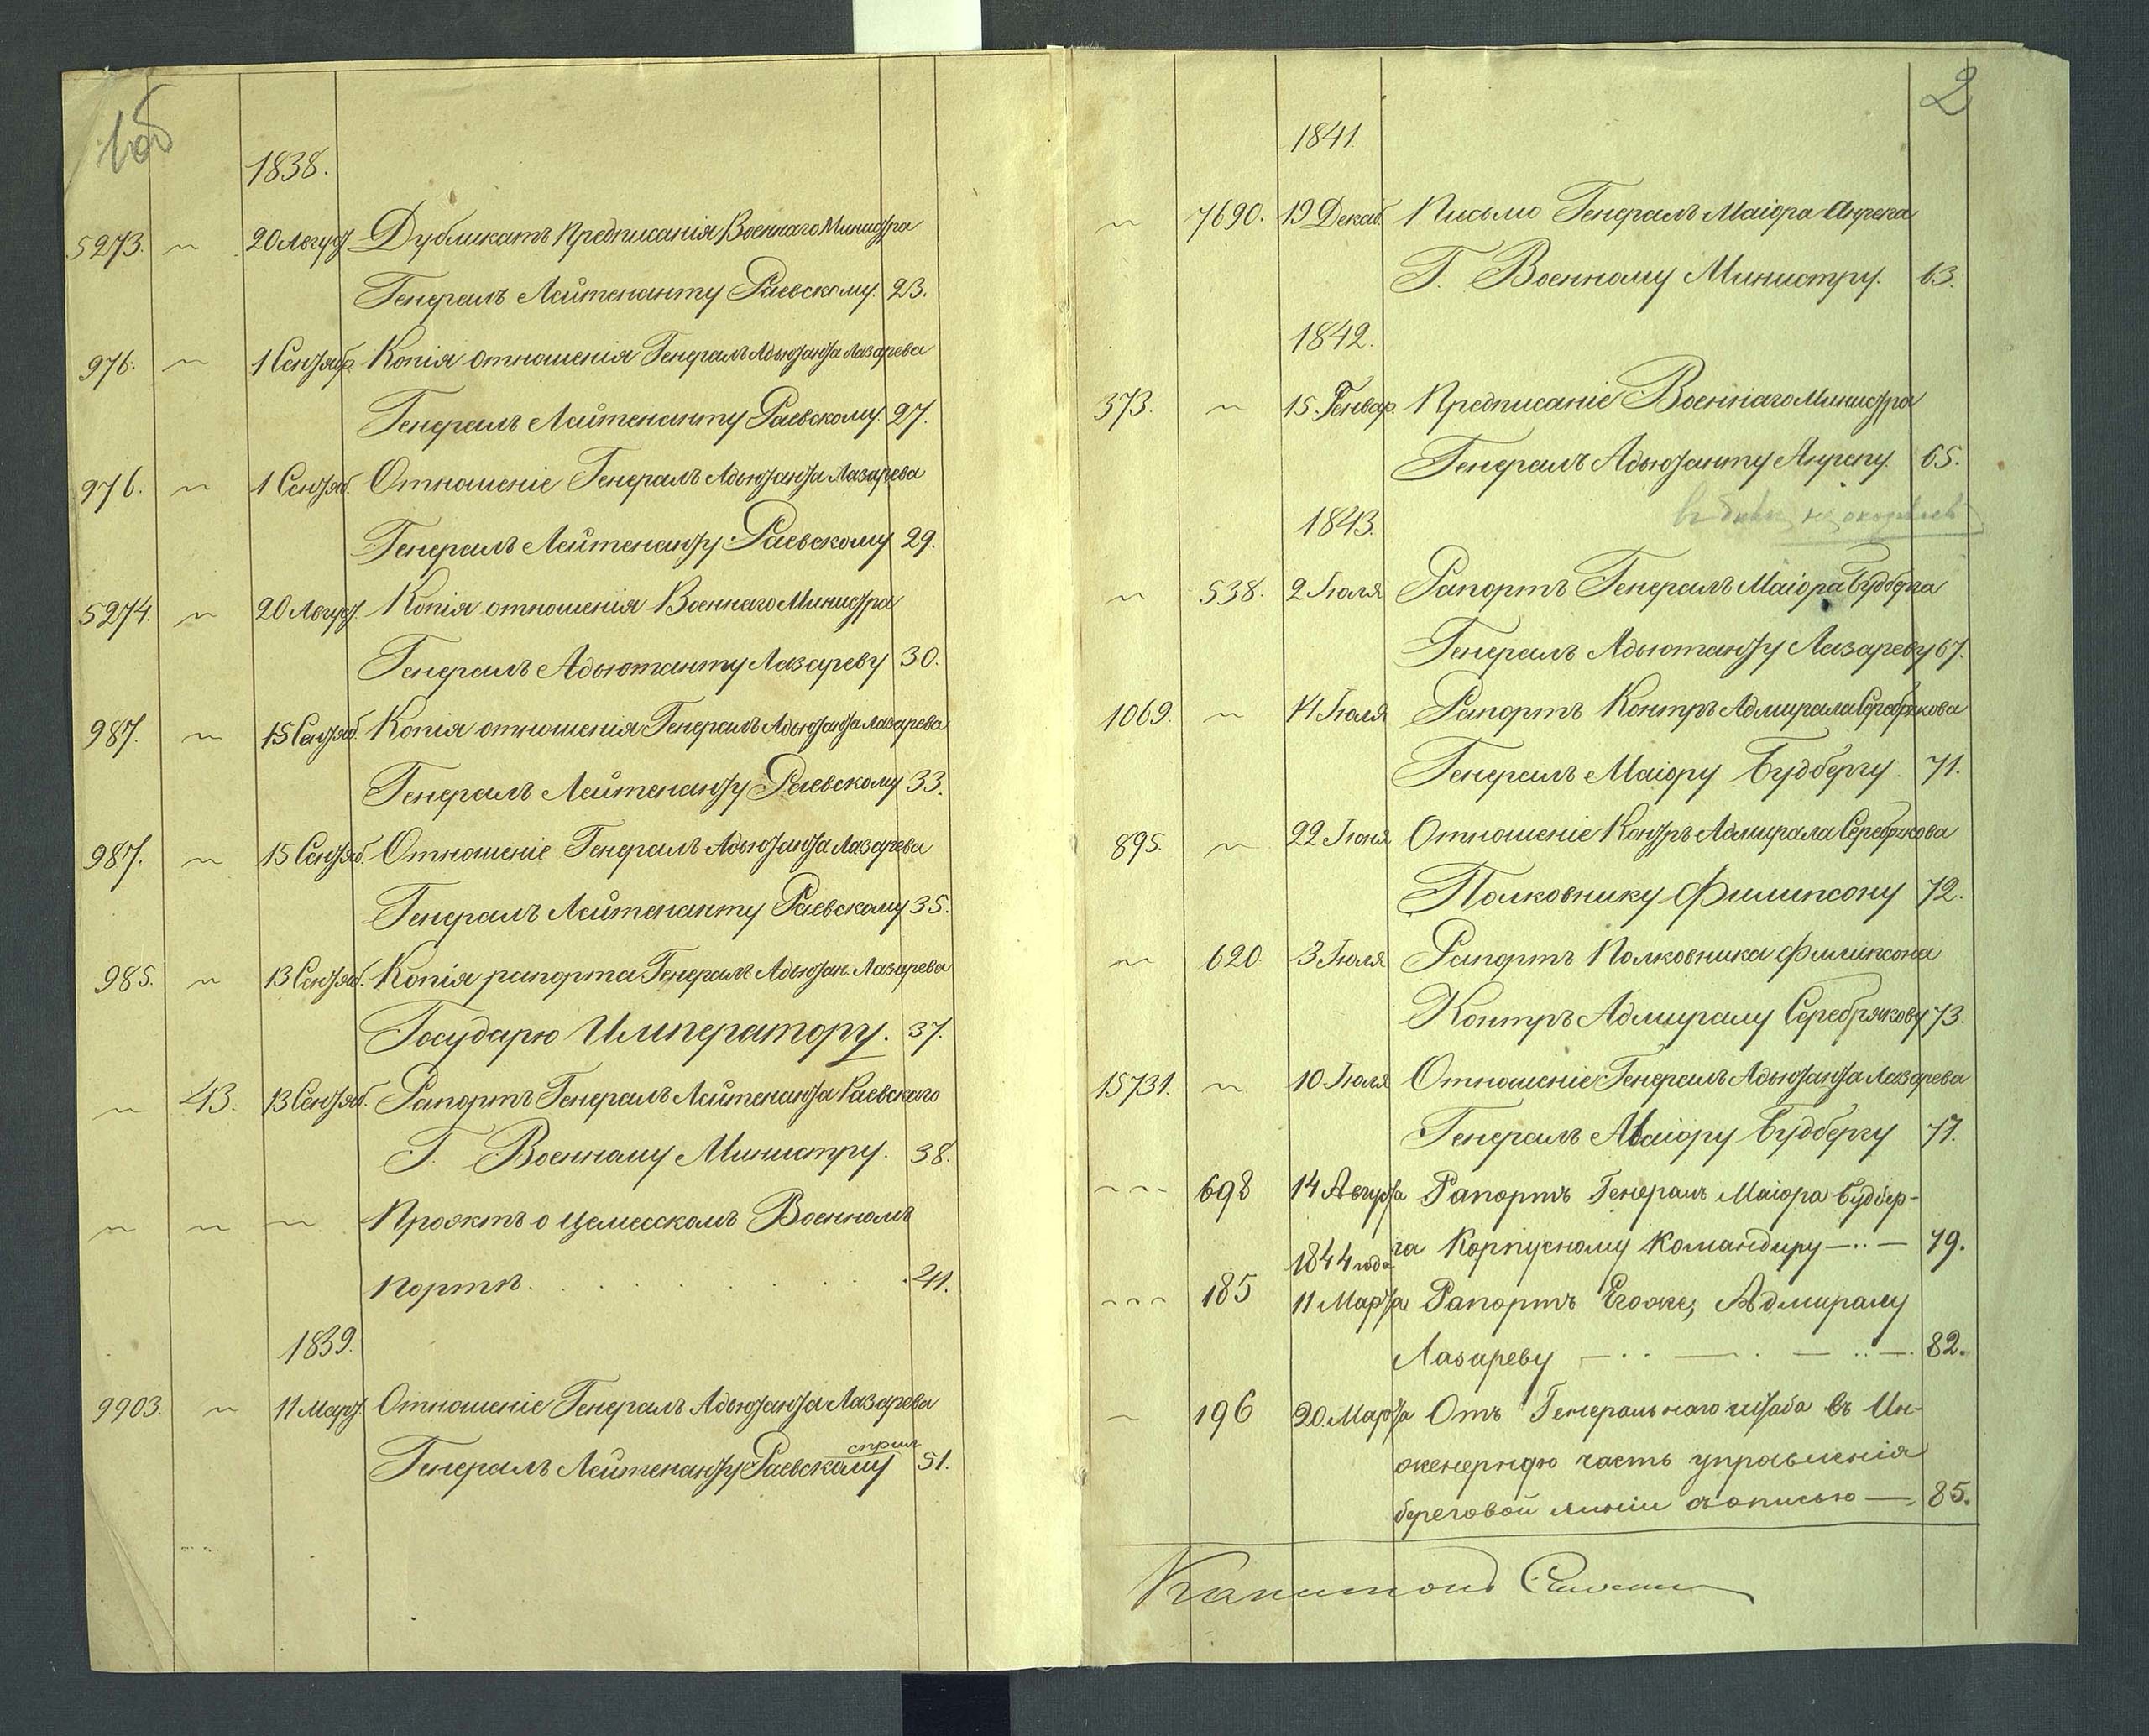 1об
1838.
5273. " 20 Август. Дубликатъ Предписанія Военнаго Министра
Генералъ Лейтенанту Раевскому. 23.
976. " 1 Сентяб. Копія отношенія Генералъ Адъютанта Лазарева
Генералъ Лейтенанту Раевскому. 27.
976. " 1 Сентяб. Отношеніе Генералъ Адъютанта Лазарева
Генералъ Лейтенанту Раевскому 29.
5274. " 20 Август. Копія отношенія Военнаго Министра
Генералъ Адъютанту Лазареву 30.
987. " 15 Сентяб. Копія отношенія Генералъ Адъютанта Лазарева
Генералъ Лейтенанту Раевскому 33.
987. " 15 Сентяб. Отношеніе Генералъ Адъютанта Лазарева
Генералъ Лейтенанту Раевскому 35.
985. " 13 Сентяб. Копія рапорта Генералъ Адъютан. Лазарева
Государю Императору. 37.
" 43. 13 Сентяб. Рапортъ Генералъ Лейтенанта Раевскаго
Г. Военному Министру. 38.
" " " Проэктъ о Цемесскомъ Военномъ
портѣ. . . . . . . . 41.
1839.
9903. " 11 Март. Отношеніе Генералъ Адъютанта Лазарева
Генералъ Лейтенанту Раевскому сприл 51.
2
1841
" 7690. 19 Декаб. Письмо Генералъ Маіора Анрепа
Г. Военному Министру. 63.
1842.
373. " 15. Генвар. Предписаніе Военнаго Министра
Генералъ Адъютанту Анрепу. 65.
1843.
" 538. 2 Іюля Рапортъ Генералъ Маіора Будберга
Генералъ Адъютанту Лазареву 67.
1069. " 14 Іюля Рапортъ Контръ Адмирала Серебрякова
Генералъ Маіору Будбергу. 71.
895. " 22 Іюня Отношеніе Контръ Адмирала Серебрякова
Полковнику Филипсону 72.
" 620. 3 Іюля Рапортъ Полковника Филипсона
Контръ Адмиралу Серебрякову 73.
15731. " 10 Іюля Отношеніе Генералъ Адъютанта Лазарева
Генералъ Маіору Будбергу 77.
" 698 14 Августа Рапортъ Генералъ Маіора Будбер-
га Корпусному Командиру — 79.
1844 года
" 185 11 Марта Рапортъ Егоже, Адмиралу
Лазареву — 82.
" 196 20. Марта Отъ Генеральнаго штаба въ Ин-
женерную часть управленія
береговой линіи съ описью — 85.